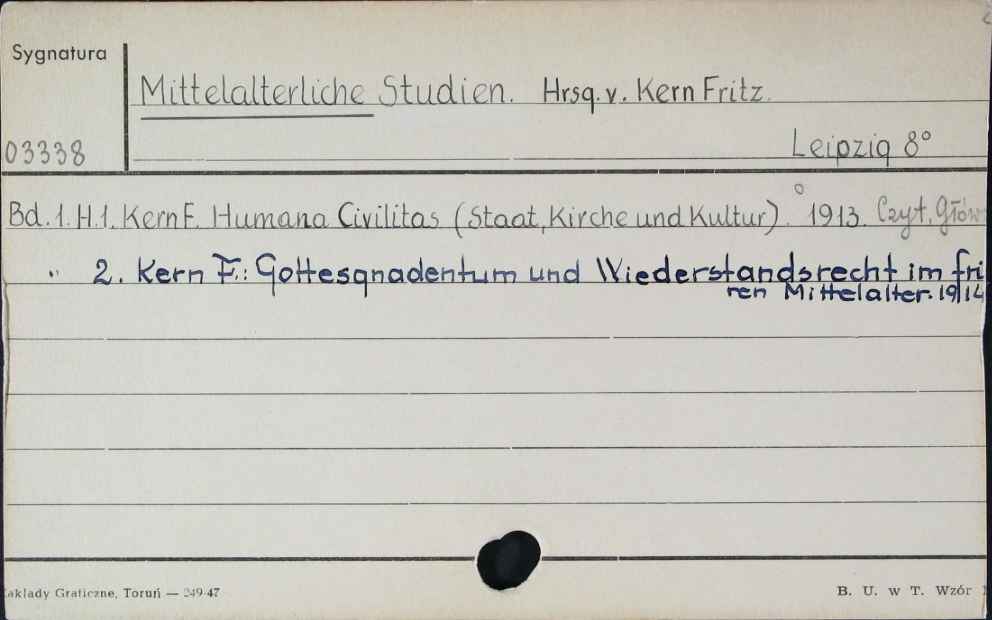 Sygnatura
Mittelalterliche Studien. Hrsg. v. Kern Fritz.
03338
Leipzig 8°
Bd. 1. H.1. Kern F. Humana Civilitas (Staat, Kirche und Kultur). ° 1913. Czyt. Głów
" 2. Kern F.: Gottesgnadentum und Wiederstandsrecht im fri
ren Mittelalter. 1914
akłady Graficzne, Toruń — 249-47
B. U. w T. Wzór